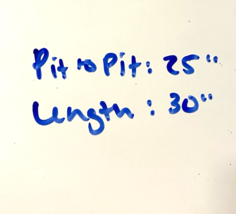 Pit to Pit: 25"
Length: 30"